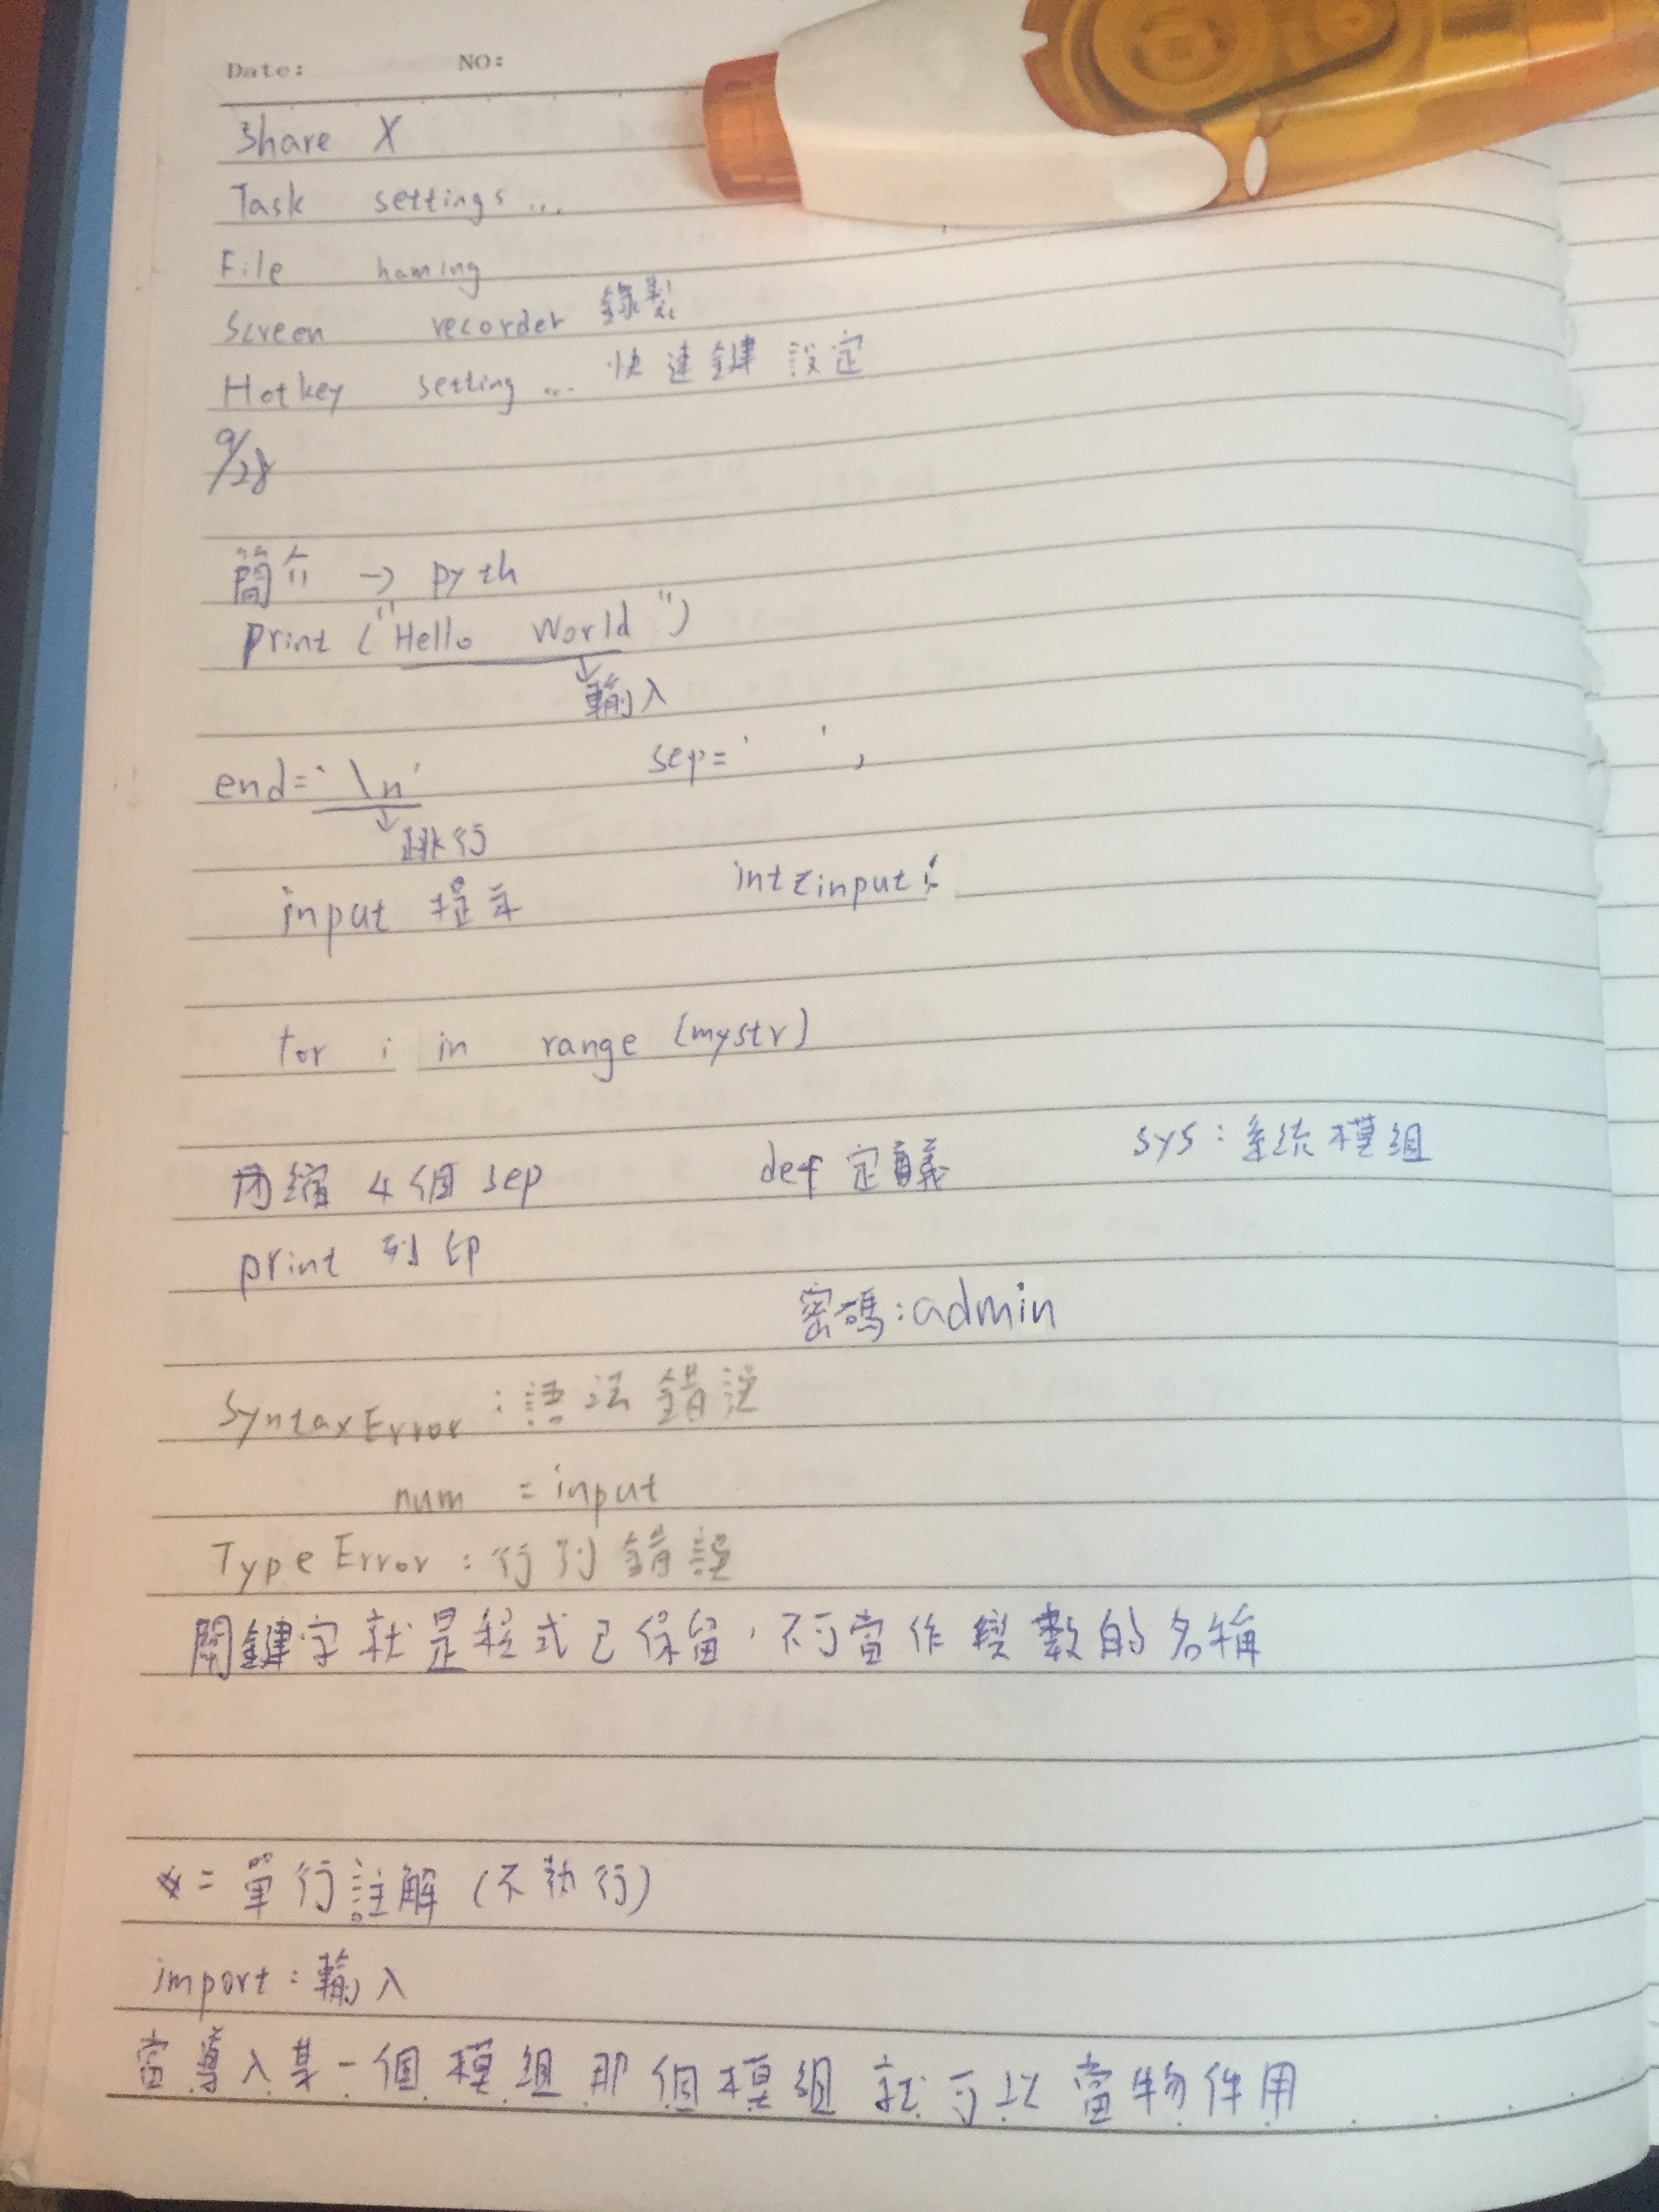 Date: NO:
Share X
Task settings ...
File naming
Screen recorder 錄製
Hotkey setting ... 快速鍵 設定
9/28
簡介 → pyth
print ("Hello World")
↓輸入
end='\n' sep=' ',
↓跳行
input 提示 int input
for i in range (mystr)
縮 4個 sep def 定義 sys:系統模組
print 列印
密碼:admin
SyntaxError:語法錯誤
num = input
TypeError:行列錯誤
關鍵字就是程式已保留,不可當作變數的名稱
= 單行註解(不執行)
import:輸入
當導入某一個模組那個模組就可以當物件用